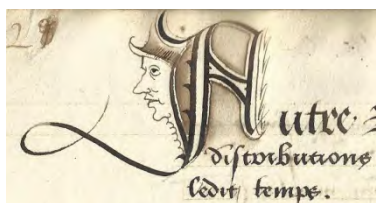 Autre
distribucions
ledit temps.